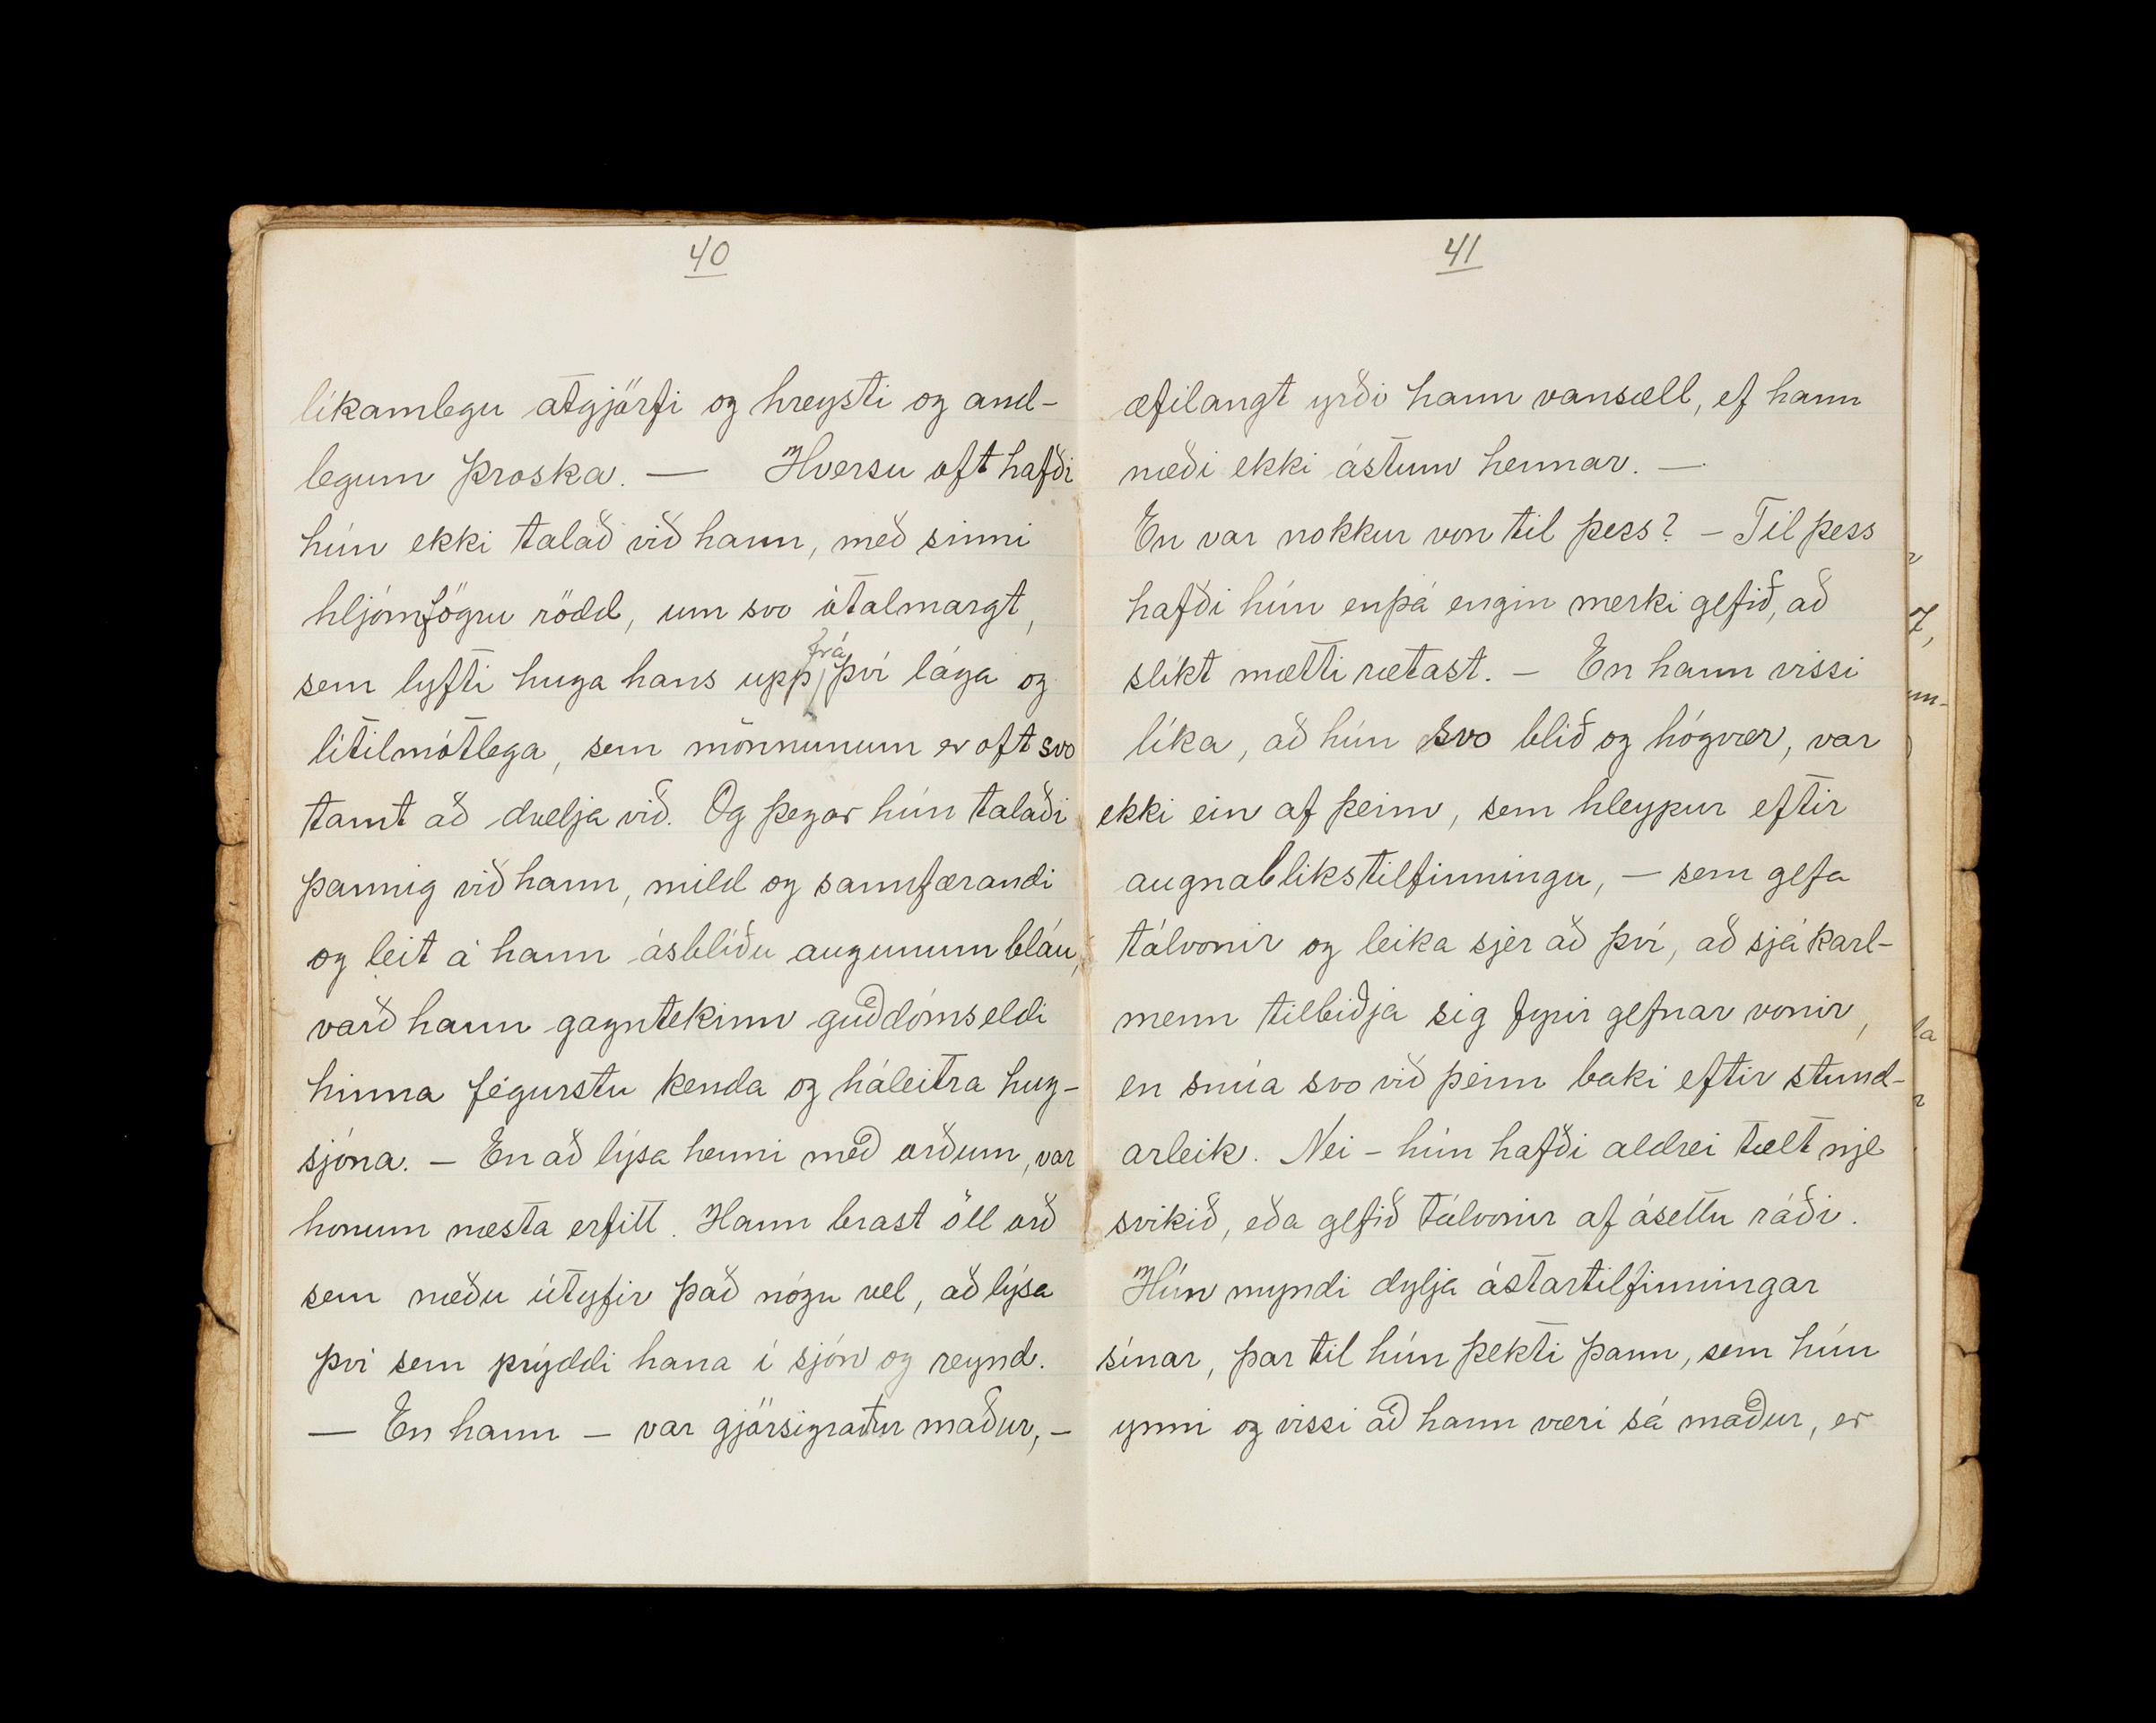 40
líkamlegu atgjörfi og hreysti og and-
legum þroska. — Hversu oft hafði
hún ekki talað við hann, með sinni
hljómfögru rödd, um svo ótalmargt,
frá
sem lyfti huga hans upp, því lága og
lítilmótlega, sem mönnunum er oft svo
tamt að dvelja við. Og þegar hún talaði
þannig við hann, mild og sannfærandi
og leit á hann ásblíðu augunum bláu,
varð hann gagntekinn guðdómseldi
hinna fegurstu kenda og háleitra hug-
sjóna. — En að lýsa henni með orðum, var
honum næsta erfitt. Hann brast öll orð
sem næðu útyfir það nógu vel, að lýsa
því sem prýddi hana í sjón og reynd.
— En hann — var gjörsigraður maður, —
41
æfilangt yrði hann vansæll, ef hann
næði ekki ástum hennar. —
En var nokkur von til þess? — Til þess
hafði hún enþá engin merki gefið, að
slíkt mætti rætast. — En hann vissi
líka, að hún svo blíð og hógvær, var
ekki ein af þeim, sem hleypur eftir
augnablikstilfinningu, — sem gefa
tálvonir og leika sjer að því, að sjá karl-
menn tilbiðja sig fyrir gefnar vonir,
en snúa svo við þeim baki eftir stund-
arleik. Nei — hún hafði aldrei tælt nje
svikið, eða gefið tálvonir af ásettu ráði.
Hún myndi dylja ástartilfinningar
sínar, þar til hún þekti þann, sem hún
ynni og vissi að hann væri sá maður, er